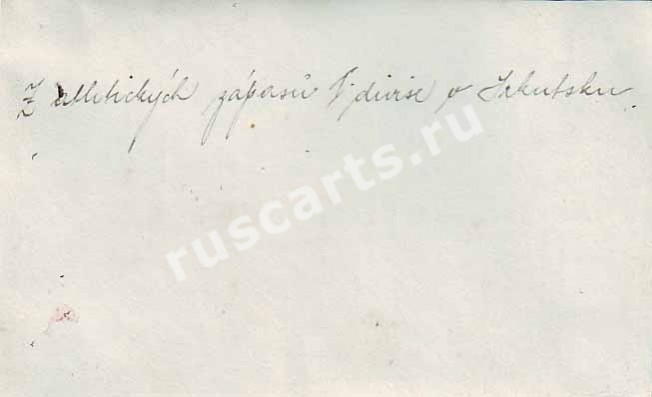 Z atletických zápasů I. divise v Irkutsku.
ruscarts.ru